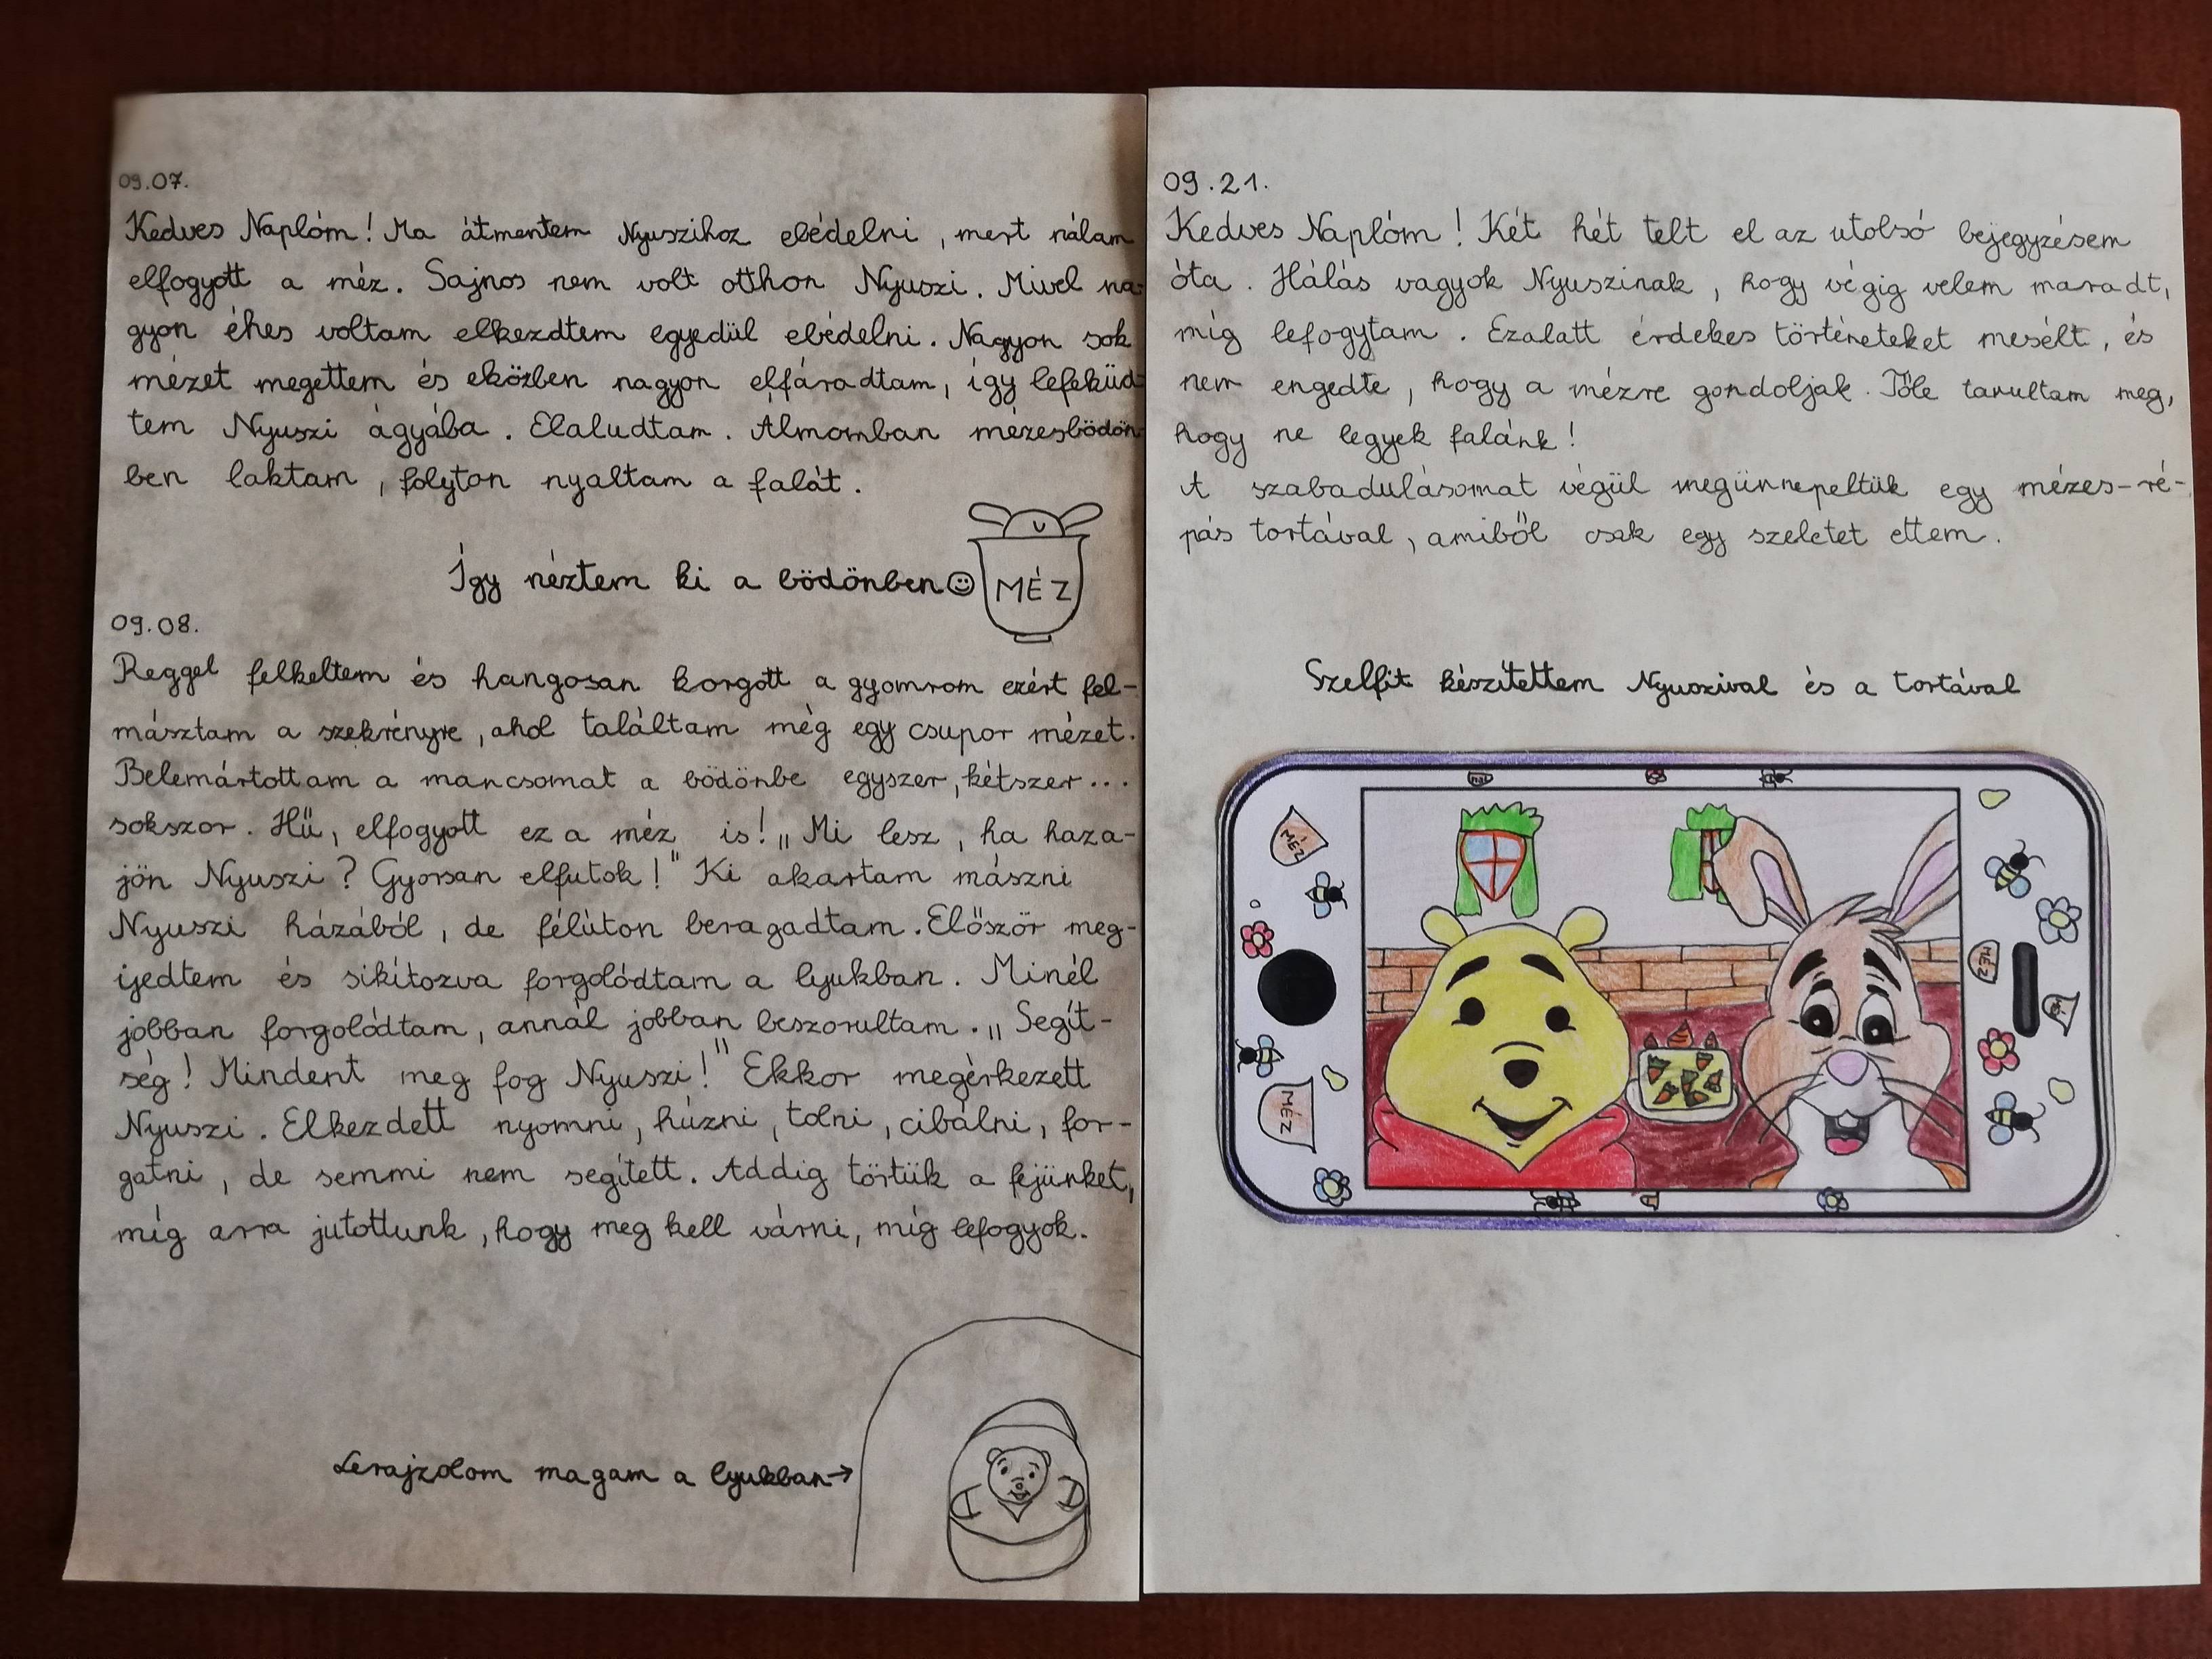 09.07.
Kedves Naplóm! Ma átmentem Nyuszihoz ebédelni, mert nálam
elfogyott a méz. Sajnos nem volt otthon Nyuszi. Mivel na-
gyon éhes voltam elkezdtem egyedül ebédelni. Nagyon sok
mézet megettem és eközben nagyon elfáradtam, így lefeküd-
tem Nyuszi ágyába. Elaludtam. Álmomban mézesbödön-
ben laktam, folyton nyaltam a falát.
Így néztem ki a bödönben☺
MÉZ
09.08.
Reggel felkeltem és hangosan korgott a gyomrom ezért fel-
másztam a szekrényre, ahol találtam még egy csupor mézet.
Belemártottam a mancsomat a bödönbe egyszer, kétszer...
sokszor. Hű, elfogyott ez a méz is! „Mi lesz, ha haza-
jön Nyuszi? Gyorsan elfutok!" Ki akartam mászni
Nyuszi házából, de félúton beragadtam. Először meg-
ijedtem és sikítozva forgolódtam a lyukban. Minél
jobban forgolódtam, annál jobban beszorultam. „Segít-
ség! Mindent meg fog Nyuszi!" Ekkor megérkezett
Nyuszi. Elkezdett nyomni, húzni, tolni, cibálni, for-
gatni, de semmi nem segített. Addig törtük a fejünket,
míg arra jutottunk, hogy meg kell várni, míg lefogyok.
Lerajzolom magam a lyukban→
09.21.
Kedves Naplóm! Két hét telt el az utolsó bejegyzésem
óta. Hálás vagyok Nyuszinak, hogy végig velem maradt,
míg lefogytam. Ezalatt érdekes történeteket mesélt, és
nem engedte, hogy a mézre gondoljak. Tőle tanultam meg,
hogy ne legyek falánk!
A szabadulásomat végül megünnepeltük egy mézes-ré-
pás tortával, amiből csak egy szeletet ettem.
Szelfit készítettem Nyuszival és a tortával
MÉZ
MÉZ
MÉZ